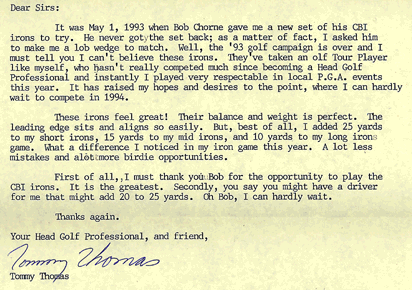 Dear Sirs:
It was May 1, 1993 when Bob Chorne gave me a new set of his CBI
irons to try. He never got the set back; as a matter of fact, I asked him
to make me a lob wedge to match. Well, the '93 golf campaign is over and I
must tell you I can't believe these irons. They've taken an olf Tour Player
like myself, who hasn't really competed much since becoming a Head Golf
Professional and instantly I played very respectable in local P.G.A. events
this year. It has raised my hopes and desires to the point, where I can hardly
wait to compete in 1994.
These irons feel great! Their balance and weight is perfect. The
leading edge sits and aligns so easily. But, best of all, I added 25 yards
to my short irons, 15 yards to my mid irons, and 10 yards to my long iron
game. What a difference I noticed in my iron game this year. A lot less
mistakes and alot more birdie opportunities.
First of all, I must thank you Bob for the opportunity to play the
CBI irons. It is the greatest. Secondly, you say you might have a driver
for me that might add 20 to 25 yards. Oh Bob, I can hardly wait.
Thanks again.
Your Head Golf Professional, and friend,
Tommy Thomas
Tommy Thomas